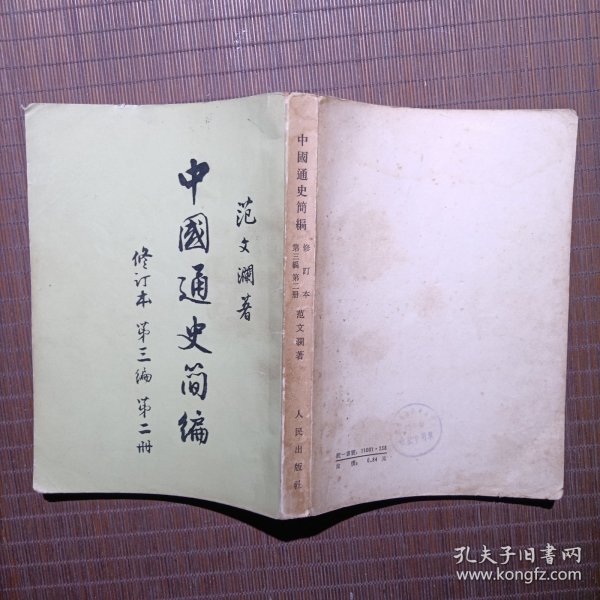 范文瀾著
中國通史简编
修订本 第三编 第二册
中國通史简編
修訂本
第三編 第二册
范文瀾著
人民出版社
統一書號：11001·238
定價： 0.84 元
孔夫子旧书网
www.kongfz.com